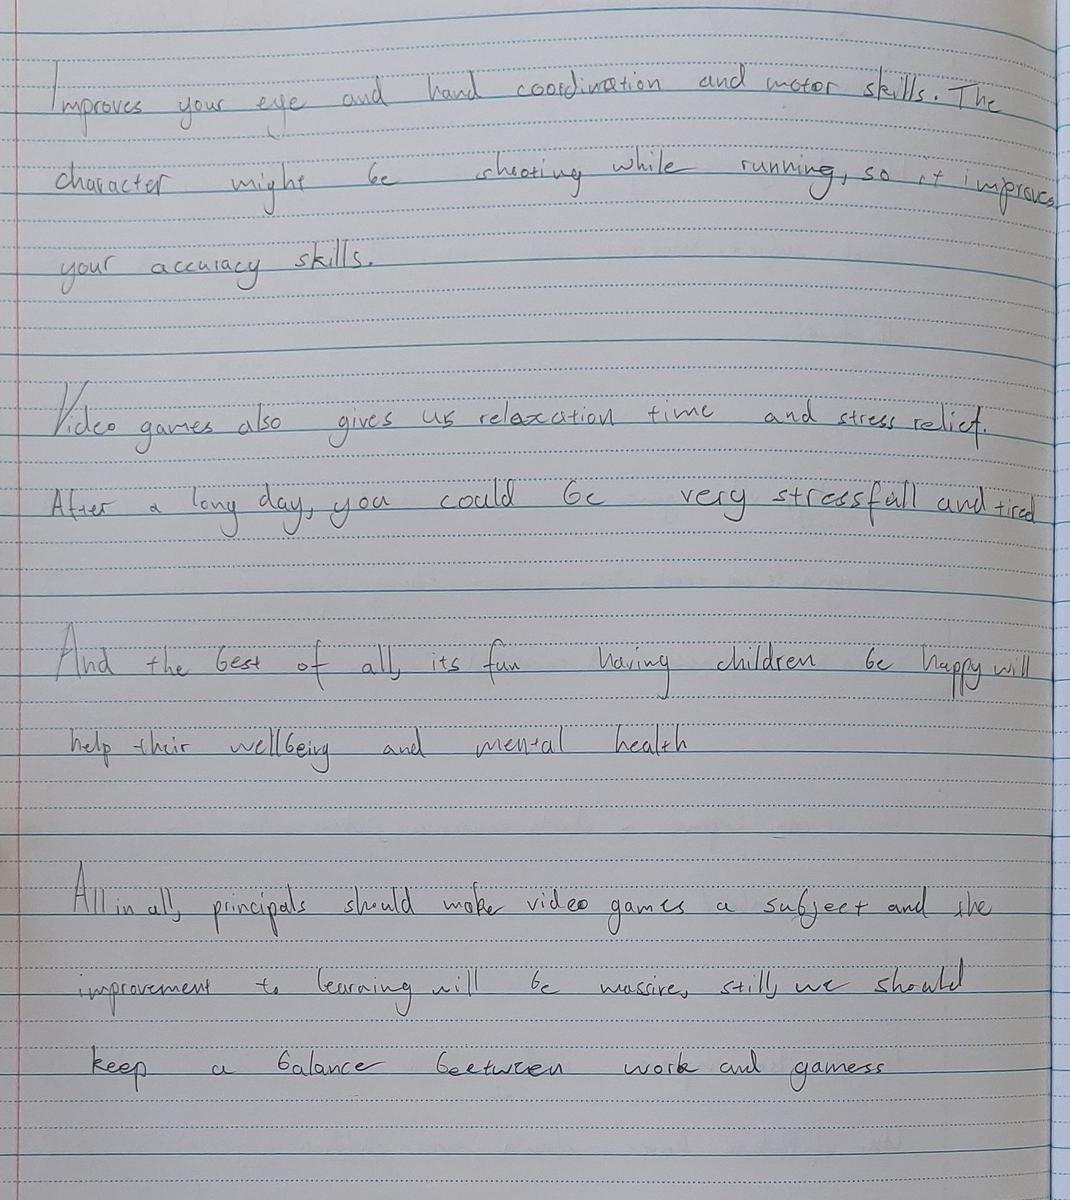 Improves your eye and hand coordination and motor skills. The
character might be shooting while running, so it improves
your accuracy skills.
Video games also gives us relaxation time and stress relief.
After a long day, you could be very stressfull and tired
And the best of all, its fun having children be happy will
help their wellbeing and mental health
All in all, principals should make video games a subject and the
improvement to learning will be massive, still, we should
keep a balance beetween work and gamess